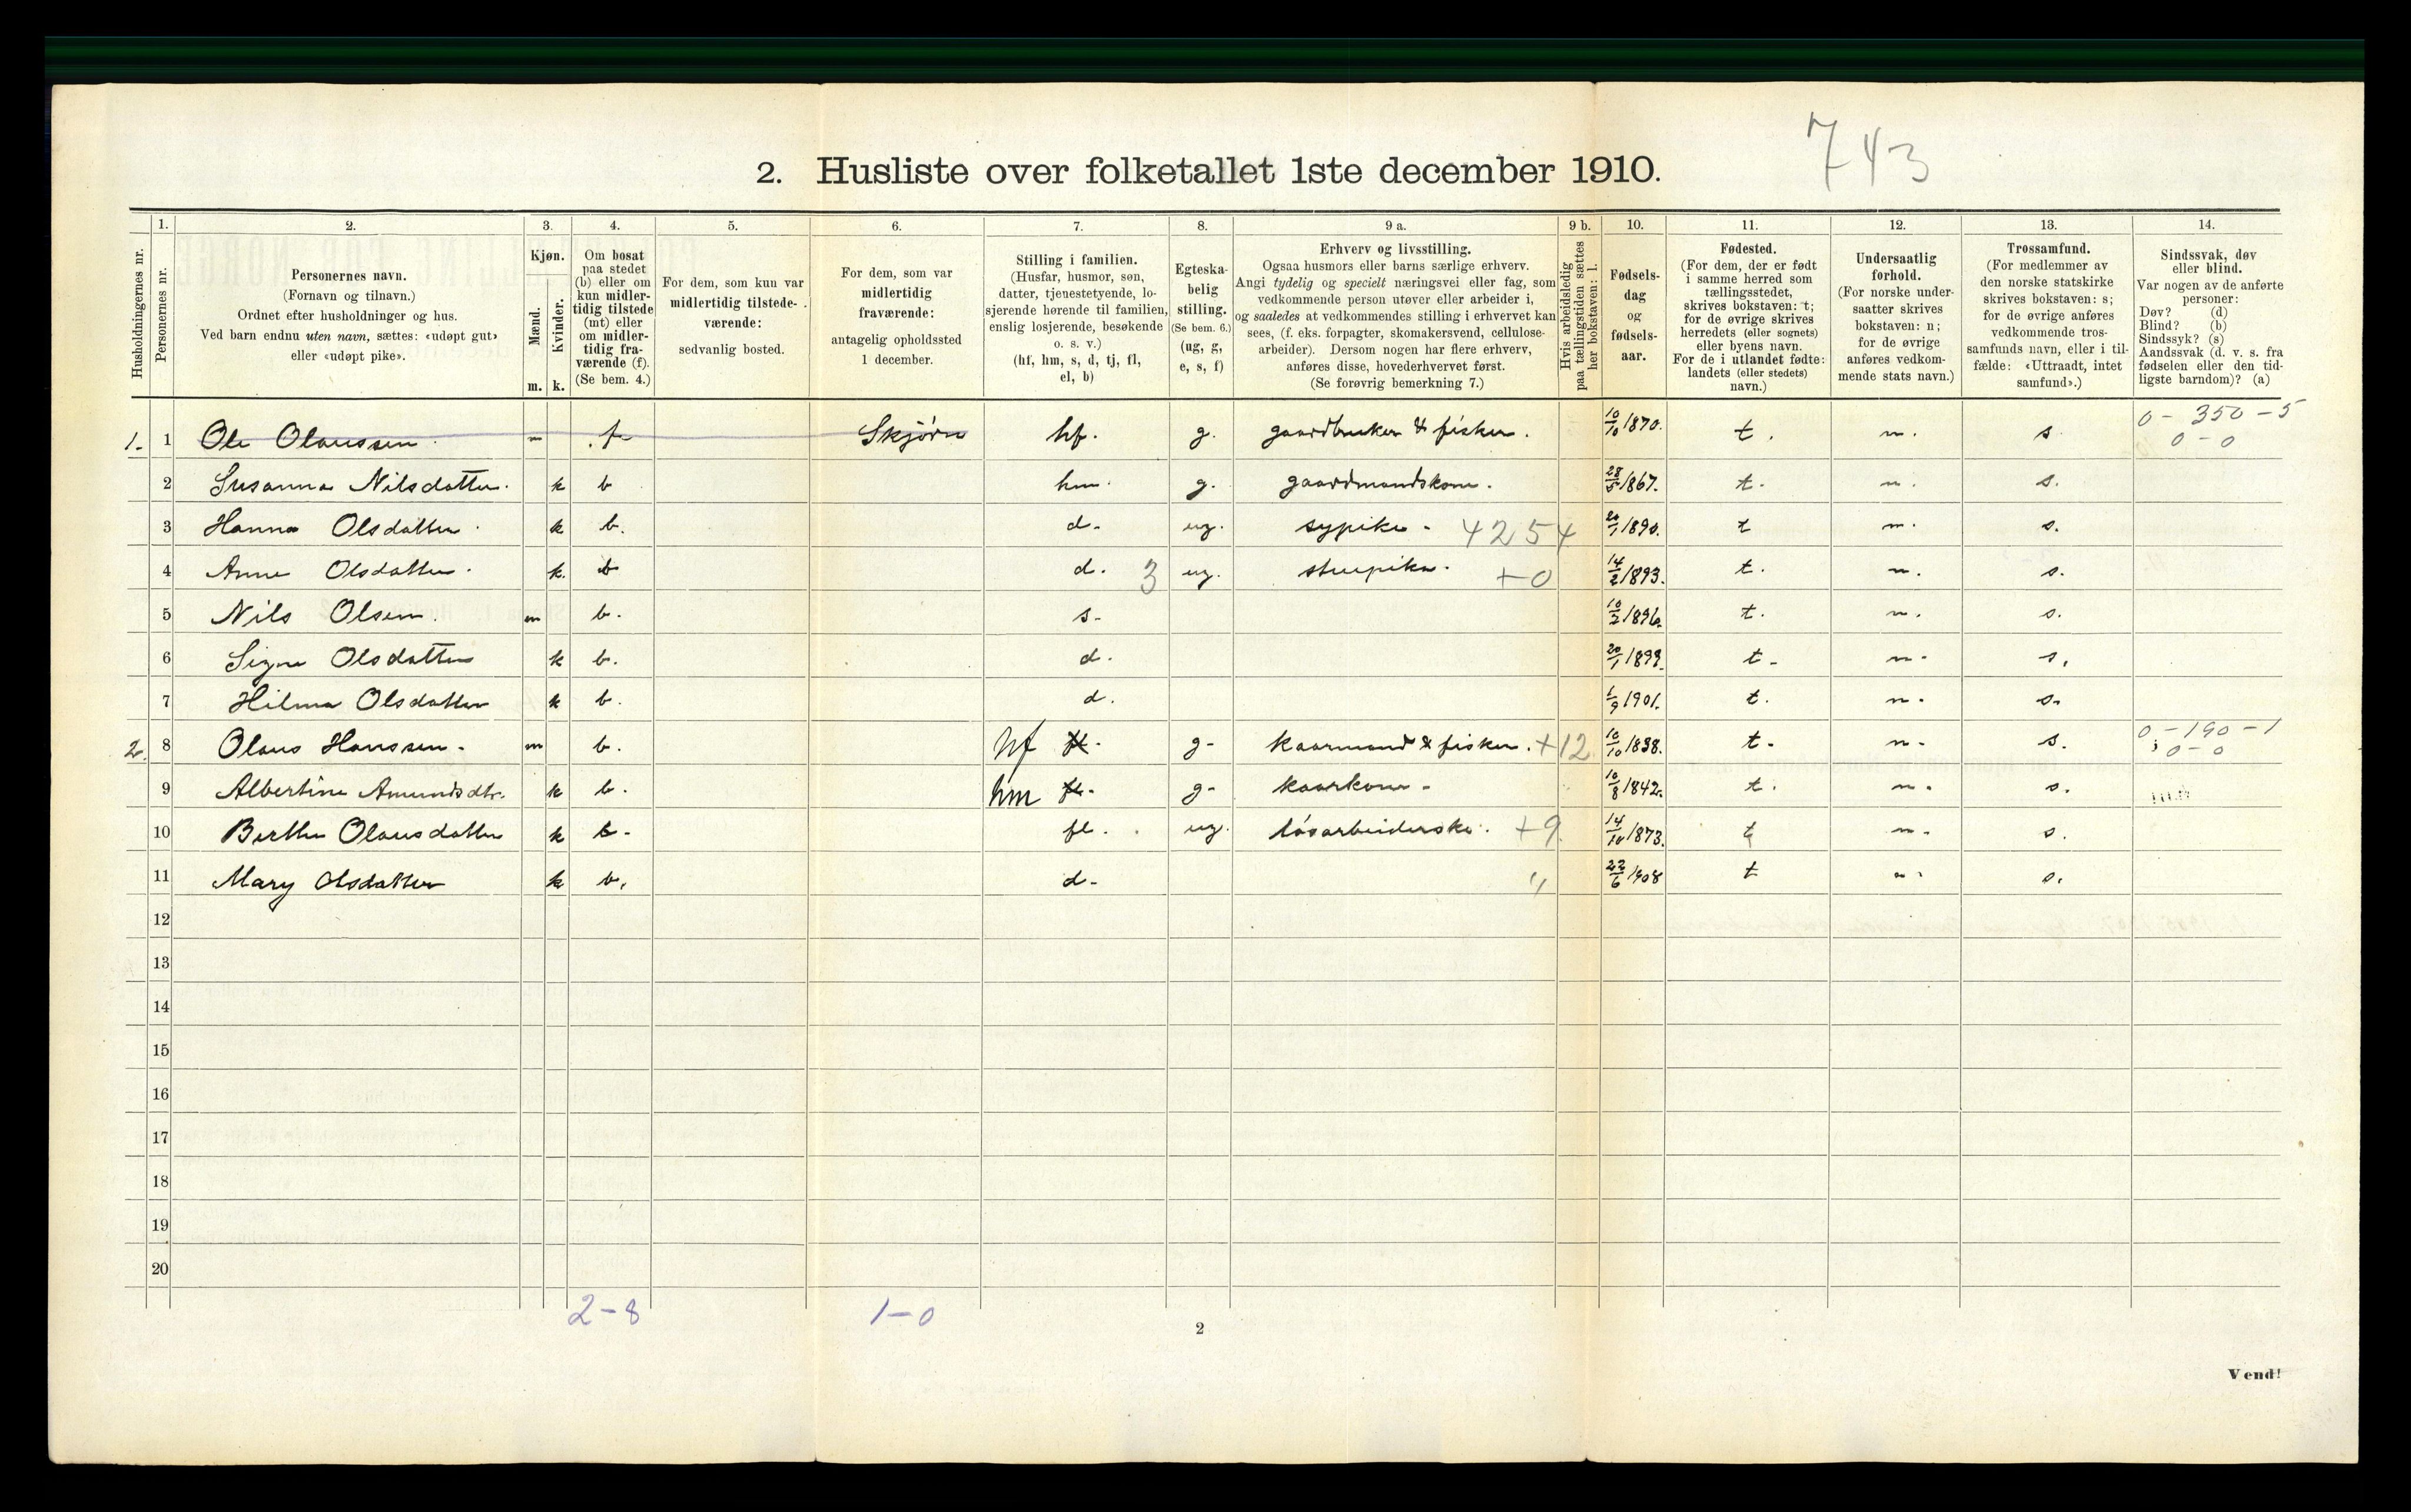 743
2. Husliste over folketallet 1ste december 1910.
1. 2. 3. 4. 5. 6. 7. 8. 9 a. 9 b. 10. 11. 12. 13. 14.
Husholdningernes nr.
Personernes nr.
Personernes navn.
(Fornavn og tilnavn.)
Ordnet efter husholdninger og hus.
Ved barn endnu uten navn, sættes: «udøpt gut»
eller «udøpt pike».
Kjøn.
Mænd.
Kvinder.
m. k.
Om bosat
paa stedet
(b) eller om
kun midler-
tidig tilstede
(mt) eller
om midler-
tidig fra-
værende (f).
(Se bem. 4.)
For dem, som kun var
midlertidig tilstede-
værende:
sedvanlig bosted.
For dem, som var
midlertidig
fraværende:
antagelig opholdssted
1 december.
Stilling i familien.
(Husfar, husmor, søn,
datter, tjenestetyende, lo-
sjerende hørende til familien,
enslig losjerende, besøkende
o. s. v.)
(hf, hm, s, d, tj, fl,
el, b)
Egteska-
belig
stilling.
(Se bem. 6.)
(ug, g,
e, s, f)
Erhverv og livsstilling.
Ogsaa husmors eller barns særlige erhverv.
Angi tydelig og specielt næringsvei eller fag, som
vedkommende person utøver eller arbeider i,
og saaledes at vedkommendes stilling i erhvervet kan
sees, (f. eks. forpagter, skomakersvend, cellulose-
arbeider). Dersom nogen har flere erhverv,
anføres disse, hovederhvervet først.
(Se forøvrig bemerkning 7.)
Hvis arbeidsledig
paa tællingstiden sættes
her bokstaven: l.
Fødsels-
dag
og
fødsels-
aar.
Fødested.
(For dem, der er født
i samme herred som
tællingsstedet,
skrives bokstaven: t;
for de øvrige skrives
herredets (eller sognets)
eller byens navn.
For de i utlandet fødte:
landets (eller stedets)
navn.)
Undersaatlig
forhold.
(For norske under-
saatter skrives
bokstaven: n;
for de øvrige
anføres vedkom-
mende stats navn.)
Trossamfund.
(For medlemmer av
den norske statskirke
skrives bokstaven: s;
for de øvrige anføres
vedkommende tros-
samfunds navn, eller i til-
fælde: «Uttraadt, intet
samfund».)
Sindssvak, døv
eller blind.
Var nogen av de anførte
personer:
Døv? (d)
Blind? (b)
Sindssyk? (s)
Aandssvak (d. v. s. fra
fødselen eller den tid-
ligste barndom)? (a)
1. 1 Ole Olaussen. m f Skjørn hf. g. gaardbruker & fisker. 10/10 1870. t. n. s 0 - 350 - 5
0 - 0
2 Susanna Nilsdatter. k b hm. g. gaardmandskone. 28/5 1867. t. n. s.
3 Hanna Olsdatter. k b. d. ug. sypike. 4254 20/1 1890. t n. s.
4 Anne Olsdatter. k. b d. 3 ug. stuepike. +0 14/2 1893. t. n. s.
5 Nils Olsen. m b. s. 10/2 1896. t. n. s.
6 Signe Olsdatter k b. d. 20/1 1899. t. n. s.
7 Hilma Olsdatter k b. d. 1/9 1901. t. n. s.
2. 8 Olaus Hanssen. m b. hf fl. g. kaarmand & fisker. +12 10/10 1838. t. n. s. 0 - 190 - 1
0 - 0
9 Albertine Amundsdtr. k b. hm fl. g. kaarkone. 10/8 1842. t. n. s.
10 Berthe Olausdatter k b. fl. ug. løsarbeiderske. +9 14/10 1873. t n. s.
11 Mary Olsdatter k b. d. " 22/6 1908 t n. s.
12
13
14
15
16
17
18
19
20
2-8 1-0
2
Vend!